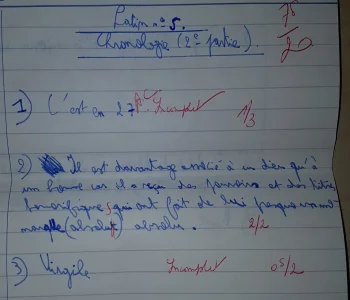 Latin n° 5.
Chronologie (2e partie).
7,5
20
1) C'est en 27 AC Incomplet 1/3
2) Il est davantage associé à un dieu qu'à
un homme car il a reçu des pouvoirs et des titres
honorifiques qui ont fait de lui presque un
(absolut) absolu. 2/2
3) Virgile Incomplet 0,5/2